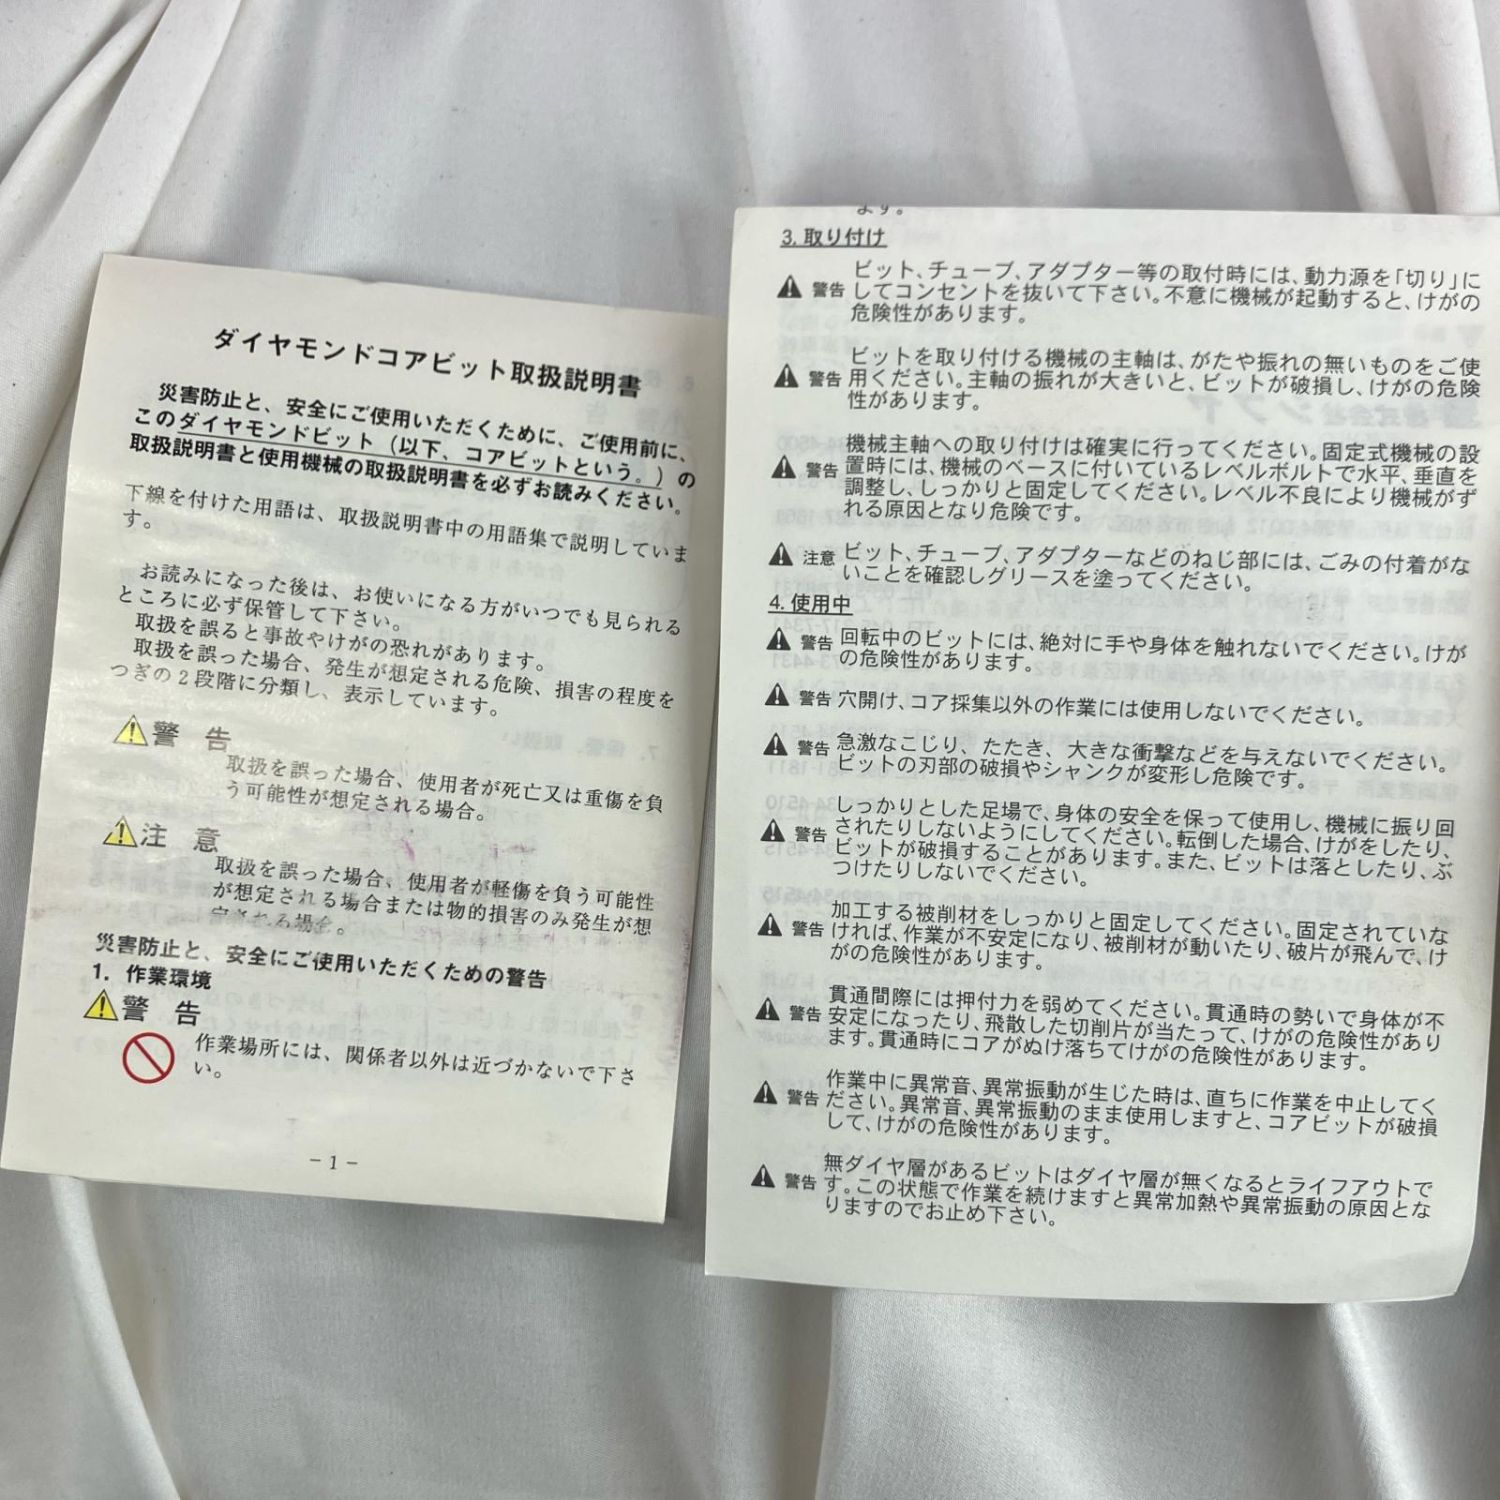 ダイヤモンドコアビット取扱説明書
災害防止と、安全にご使用いただくために、ご使用前に、
このダイヤモンドビット（以下、コアビットという。）の
取扱説明書と使用機械の取扱説明書を必ずお読みください。
下線を付けた用語は、取扱説明書中の用語集で説明していま
す。
お読みになった後は、お使いになる方がいつでも見られる
ところに必ず保管して下さい。
取扱を誤ると事故やけがの恐れがあります。
取扱を誤った場合、発生が想定される危険、損害の程度を
つぎの２段階に分類し、表示しています。
警 告
取扱を誤った場合、使用者が死亡又は重傷を負
う可能性が想定される場合。
注 意
取扱を誤った場合、使用者が軽傷を負う可能性
が想定される場合または物的損害のみ発生が想
定される場合。
災害防止と、安全にご使用いただくための警告
1. 作業環境
警 告
作業場所には、関係者以外は近づかないで下さ
い。
－1－
ます。
3. 取り付け
ビット、チューブ、アダプター等の取付時には、動力源を「切り」に
警告 してコンセントを抜いて下さい。不意に機械が起動すると、けがの
危険性があります。
ビットを取り付ける機械の主軸は、がたや振れの無いものをご使
警告 用ください。主軸の振れが大きいと、ビットが破損し、けがの危険
性があります。
機械主軸への取り付けは確実に行ってください。固定式機械の設
警告 置時には、機械のベースに付いているレベルボルトで水平、垂直を
調整し、しっかりと固定してください。レベル不良により機械がず
れる原因となり危険です。
注意 ビット、チューブ、アダプターなどのねじ部には、ごみの付着がな
いことを確認しグリースを塗ってください。
4. 使用中
警告 回転中のビットには、絶対に手や身体を触れないでください。けが
の危険性があります。
警告 穴開け、コア採集以外の作業には使用しないでください。
警告 急激なこじり、たたき、大きな衝撃などを与えないでください。
ビットの刃部の破損やシャンクが変形し危険です。
しっかりとした足場で、身体の安全を保って使用し、機械に振り回
警告 されたりしないようにしてください。転倒した場合、けがをしたり、
ビットが破損することがあります。また、ビットは落としたり、ぶ
つけたりしないでください。
加工する被削材をしっかりと固定してください。固定されていな
警告 ければ、作業が不安定になり、被削材が動いたり、破片が飛んで、け
がの危険性があります。
貫通間際には押付力を弱めてください。貫通時の勢いで身体が不
警告 安定になったり、飛散した切削片が当たって、けがの危険性があり
ます。貫通時にコアがぬけ落ちてけがの危険性があります。
作業中に異常音、異常振動が生じた時は、直ちに作業を中止してく
警告 ださい。異常音、異常振動のまま使用しますと、コアビットが破損
して、けがの危険性があります。
無ダイヤ層があるビットはダイヤ層が無くなるとライフアウトで
警告 す。この状態で作業を続けますと異常加熱や異常振動の原因とな
りますのでお止め下さい。